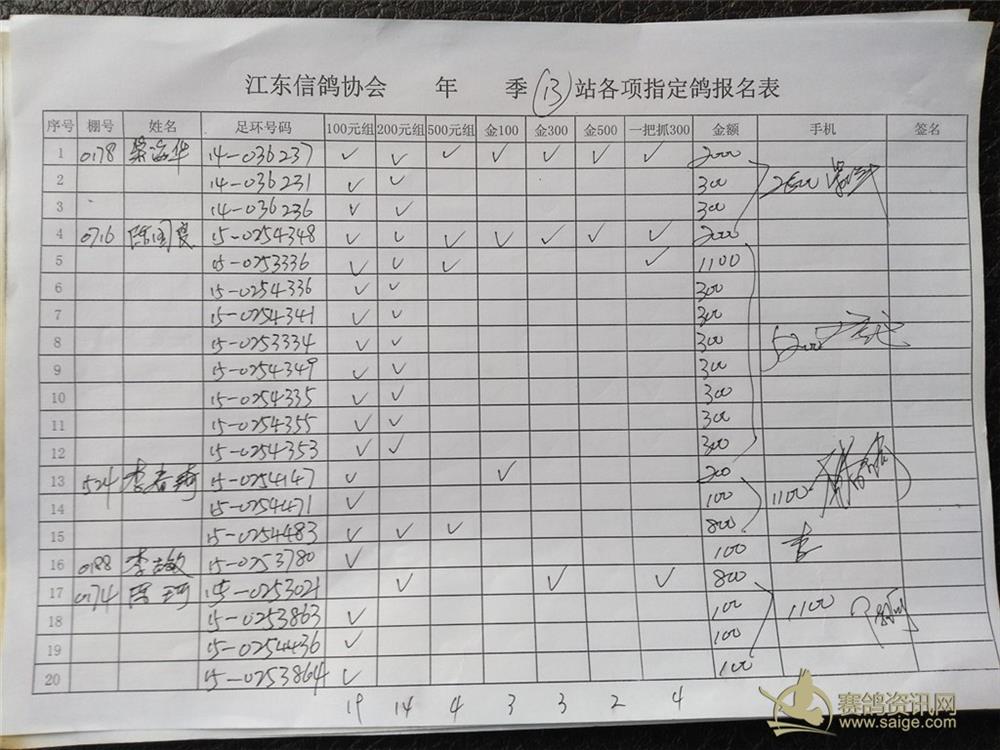 江东信鸽协会 年 季 13 站各项指定鸽报名表
序号 棚号 姓名 足环号码 100元组 200元组 500元组 金100 金300 金500 一把抓300 金额 手机 签名
1 0178 14-036237 ✓ ✓ ✓ ✓ ✓ ✓ ✓ 2000
2 14-036231 ✓ ✓ 300 2600
3 14-036236 ✓ ✓ 300
4 0716 陈国良 15-0254348 ✓ ✓ ✓ ✓ ✓ ✓ ✓ 2000
5 15-0253336 ✓ ✓ ✓ ✓ 1100
6 15-0254336 ✓ ✓ 300
7 15-0254341 ✓ ✓ 300
8 15-0253334 ✓ ✓ 300 5200
9 15-0254349 ✓ ✓ 300
10 15-0254335 ✓ ✓ 300
11 15-0254355 ✓ ✓ 300
12 15-0254353 ✓ ✓ 300
13 524 李春 15-0254147 ✓ ✓ 200
14 15-0254471 ✓ 100 1100
15 15-0254483 ✓ ✓ ✓ 800
16 0188 李 敏 15-0253780 ✓ 100
17 0174 15-0253021 ✓ ✓ ✓ 800
18 15-0253863 ✓ 100 1100
19 15-0254436 ✓ 100
20 15-0253864 ✓ 100
19 14 4 3 3 2 4
赛鸽资讯网
www.saige.com